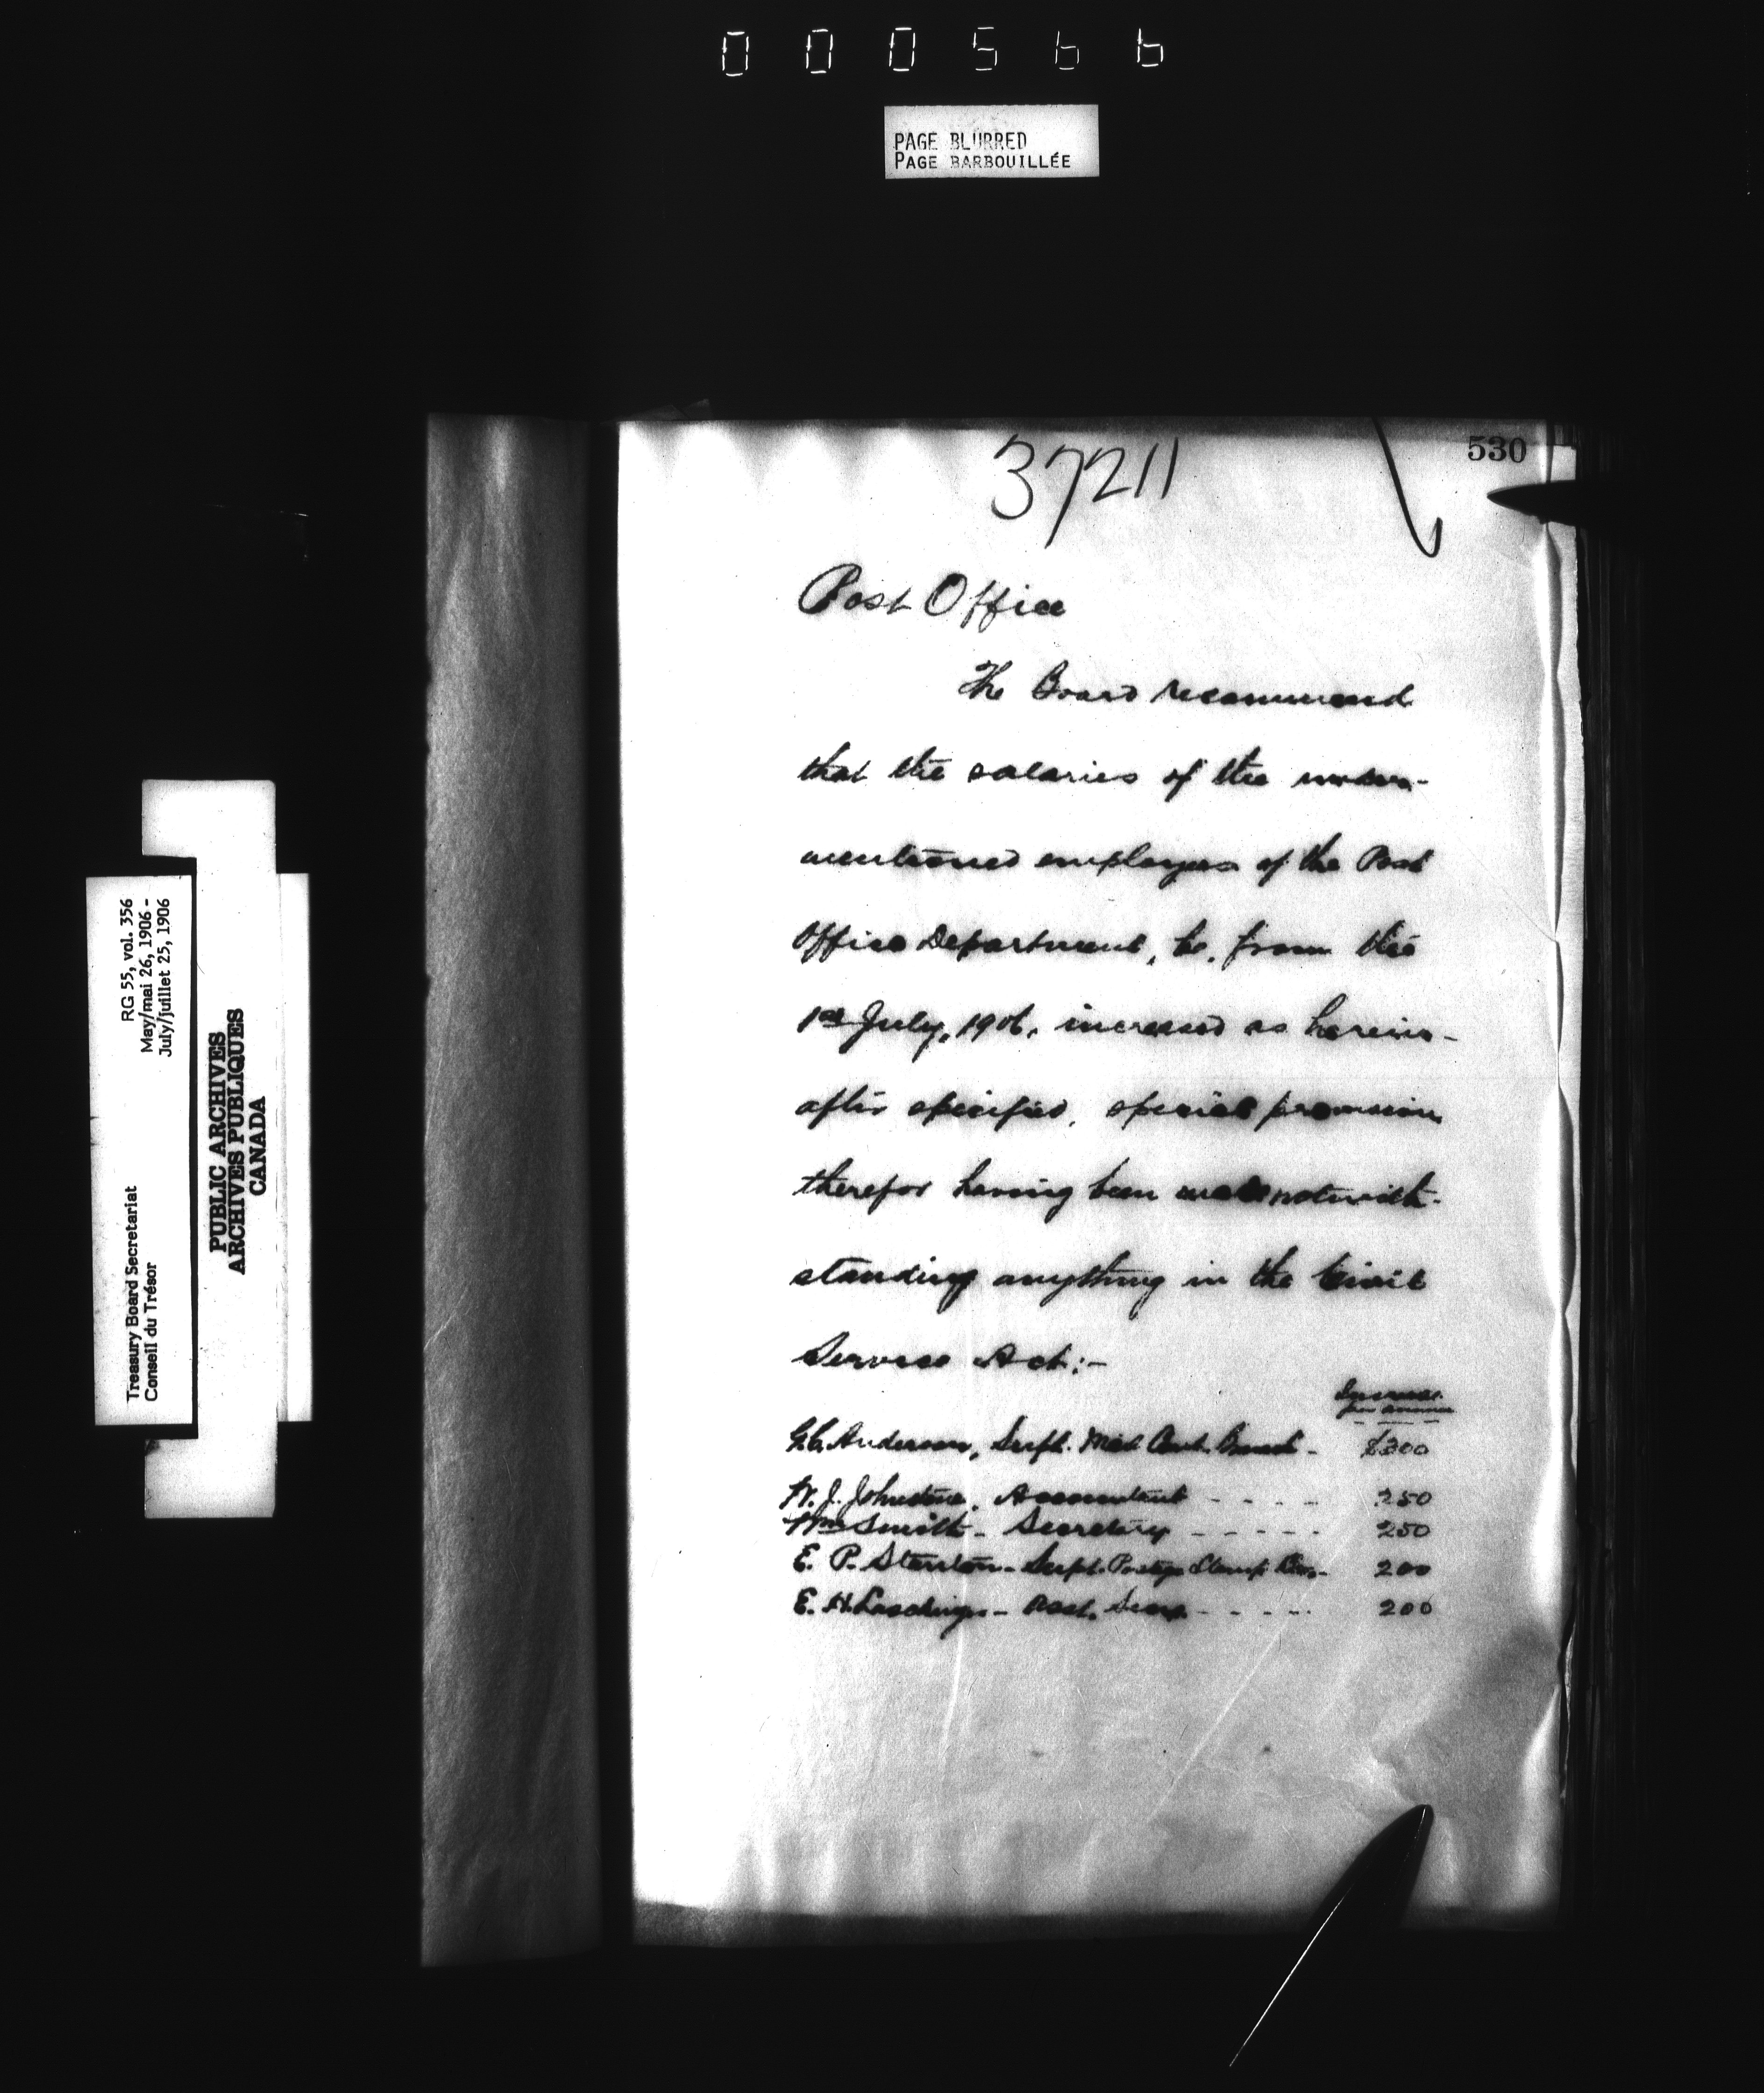 000566
PAGE BLURRED
PAGE BARBOUILLÉE
530
37211
Post Office
The Board recommend
that the salaries of the under-
mentioned employees of the Post
Office Department, be, from the
1st July, 1906, increased as herein-
after specified, special provision
therefor having been made notwith-
standing anything in the Civil
Service Act:-
Increase
per annum
G.C. Anderson, Supt. Branch - $300
W. J. Johnstone, Accountant - - - - 250
Wm Smith - Secretary - - - - - 250
E. P. Stanton - Supt. Postage Stamp - 200
E. H. - Asst. - - - - 200
Treasury Board Secretariat
Conseil du Trésor
RG 55, vol. 356
May/mai 26, 1906 -
July/juillet 25, 1906
PUBLIC ARCHIVES
ARCHIVES PUBLIQUES
CANADA